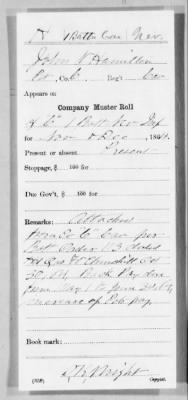 H 1 Batt'n Cav. Nev.
John N Hamilton
Pvt, Co. C, Reg't Cav
Appears on
Company Muster Roll
of "C" 1 Batt Nev Inf
for Nov & Dec, 1864.
Present or absent, Present
Stoppage, $ 100 for
Due Gov't, $ 100 for
Remarks: Attached
from Co "C" Cav per
Batt Order 113 dated
Ft Churchill Oct
30, 64, Back Pay due
from May 1 to June 30, 64
increase of Pay
Book mark:
Wright
(358) Copyist.